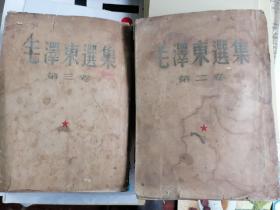 毛澤東選集
第三卷
毛澤東選集
第二卷